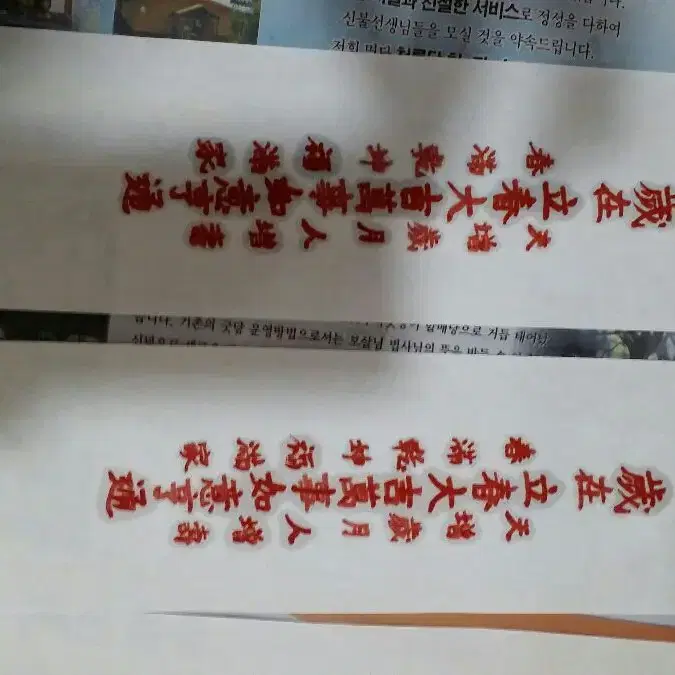 친절한 서비스로 정성을 다하여
신불선생님들을 모실 것을 약속드립니다.
저희
天增歲月人增壽
歲在 立春大吉萬事如意亨通
春滿乾坤福滿家
굿당 운영방법으로서는
보살님 법사님의 뜻을 받들 수
天增歲月人增壽
歲在 立春大吉萬事如意亨通
春滿乾坤福滿家